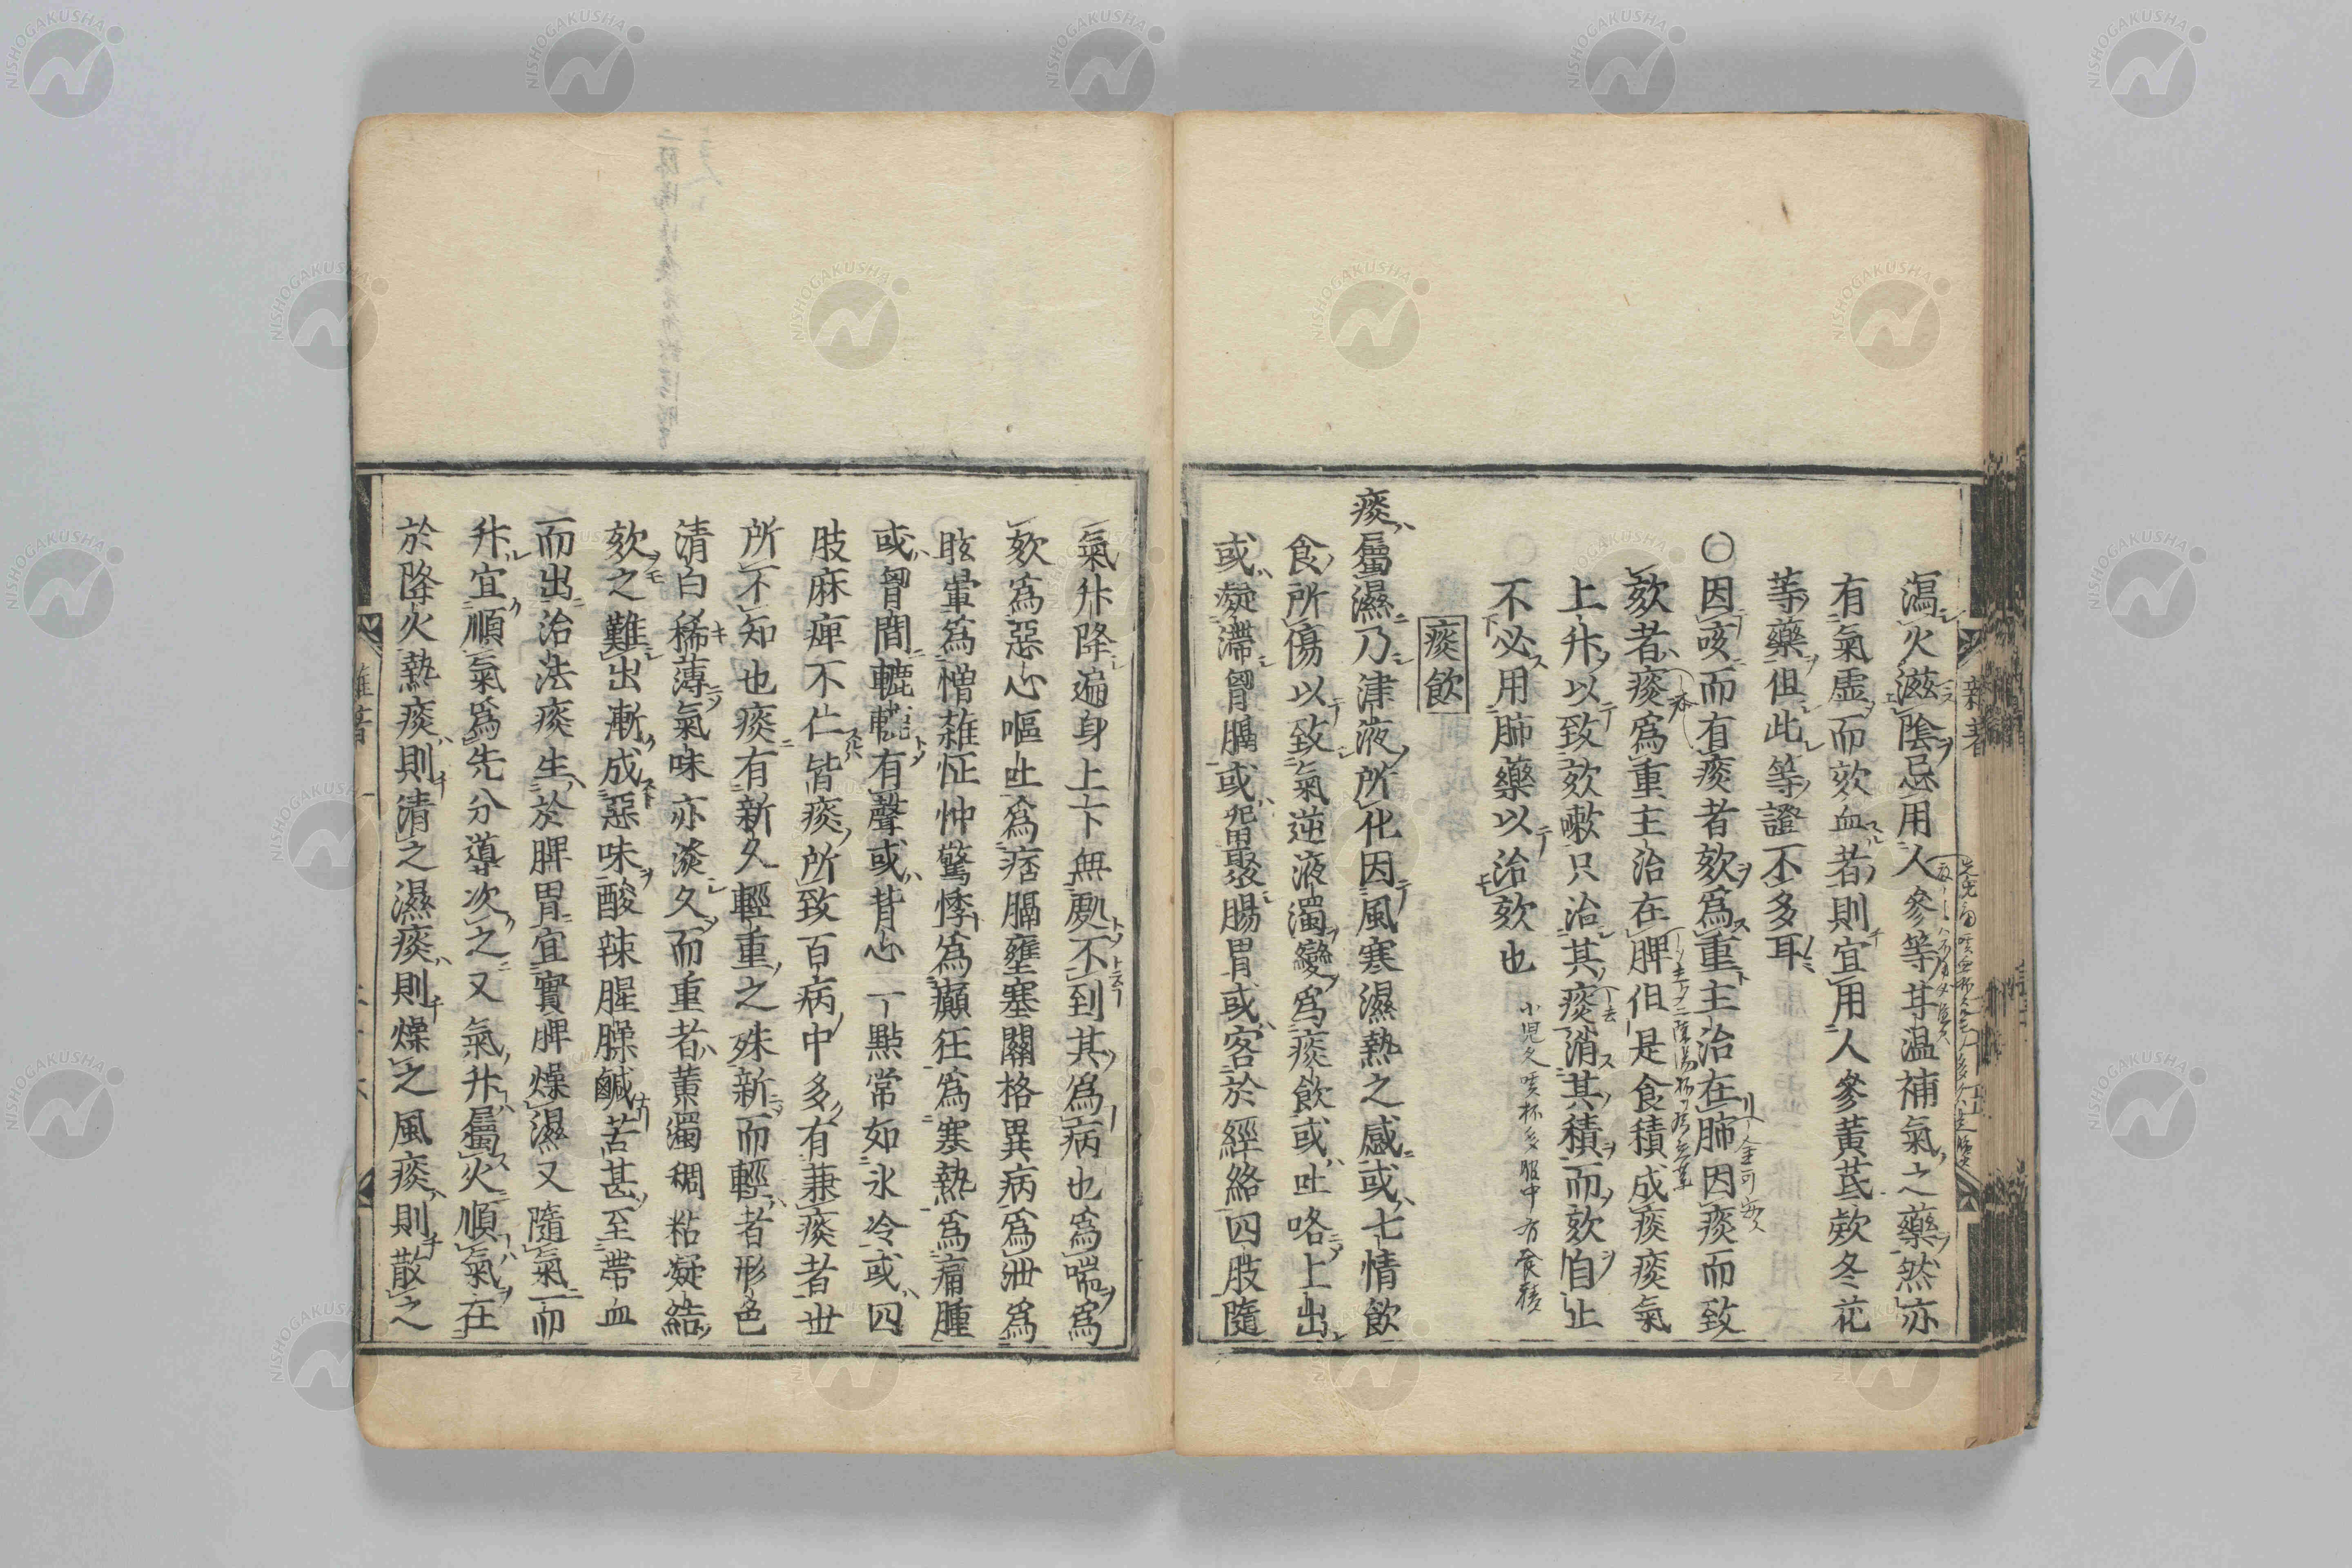 瀉火滋陰忌用人參等甘温補氣之藥然亦
有氣虚而欬血者則宜用人參黄芪欵冬花
等藥但此等證不多耳
〇因咳而有痰者欬爲重主治在肺因痰而致
欬者痰爲重主治在脾但是食積成痰痰氣
上升以致欬嗽只治其痰消其積而欬自止
不必用肺藥以治欬也
小児久咳
痰飲
痰屬濕乃津液所化因風寒濕熱之感或七情飲
食所傷以致氣逆液濁變爲痰飲或吐咯上出
或凝滯胷膈或畱聚腸胃或客於經絡四肢隨
氣升降遍身上下無處不到其爲病也爲喘爲
欬爲惡心嘔吐爲痞膈壅塞關格異病爲泄爲
眩暈爲憎雜怔忡驚悸爲癲狂爲寒熱爲痛腫
或胷間轆轆有聲或背心一點常如氷冷或四
肢麻痺不仁皆痰所致百病中多有兼痰者世
所不知也痰有新久輕重之殊新而輕者形色
清白稀薄氣味亦淡久而重者黄濁稠粘凝結
欬之難出漸成惡味酸辣腥臊鹹苦甚至帶血
而出治法痰生於脾胃宜實脾燥濕又隨氣而
升宜順氣爲先分導次之又氣升屬火順氣在
於降火熱痰則清之濕痰則燥之風痰則散之
NISHOGAKUSHA